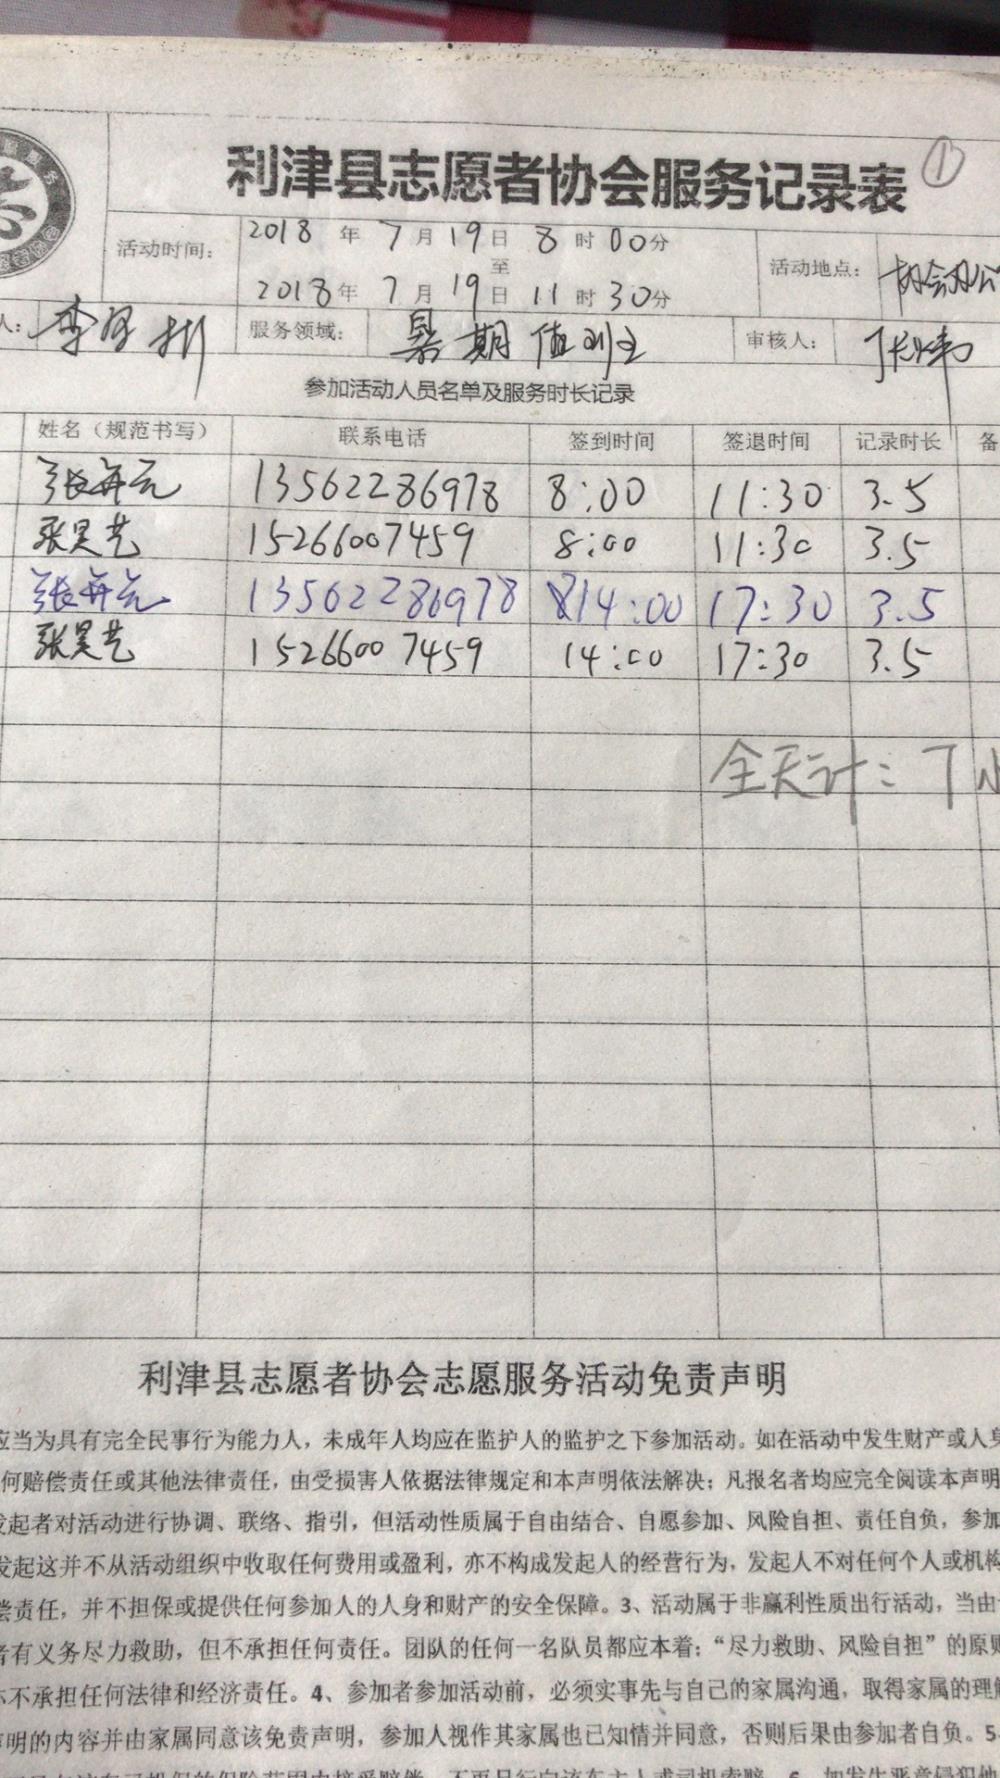 利津县志愿者协会服务记录表 ①
活动时间： 2018年7月19日8时00分
至
2018年7月19日11时30分
活动地点： 协会办公
人： 服务领域： 暑期值班 审核人： 张炜
参加活动人员名单及服务时长记录
姓名（规范书写） 联系电话 签到时间 签退时间 记录时长 备
13562286978 8:00 11:30 3.5
张昊艺 15266007459 8:00 11:30 3.5
13562286978 14:00 17:30 3.5
张昊艺 15266007459 14:00 17:30 3.5
全天计：7小
利津县志愿者协会志愿服务活动免责声明
应当为具有完全民事行为能力人，未成年人均应在监护人的监护之下参加活动。如在活动中发生财产或人身
何赔偿责任或其他法律责任，由受损害人依据法律规定和本声明依法解决；凡报名者均应完全阅读本声明
发起者对活动进行协调、联络、指引，但活动性质属于自由结合、自愿参加、风险自担、责任自负，参加
发起这并不从活动组织中收取任何费用或盈利，亦不构成发起人的经营行为，发起人不对任何个人或机构
偿责任，并不担保或提供任何参加人的人身和财产的安全保障。3、活动属于非赢利性质出行活动，当由
者有义务尽力救助，但不承担任何责任。团队的任何一名队员都应本着：“尽力救助、风险自担”的原则
亦不承担任何法律和经济责任。4、参加者参加活动前，必须实事先与自己的家属沟通，取得家属的理解
声明的内容并由家属同意该免责声明，参加人视作其家属也已知情并同意，否则后果由参加者自负。5